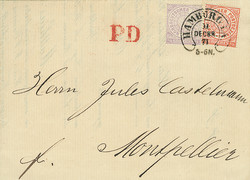 PD
HAMBURG
11
DECBR.
71
5-6N.
Herrn Jules Castelnau
fr. Montpellier